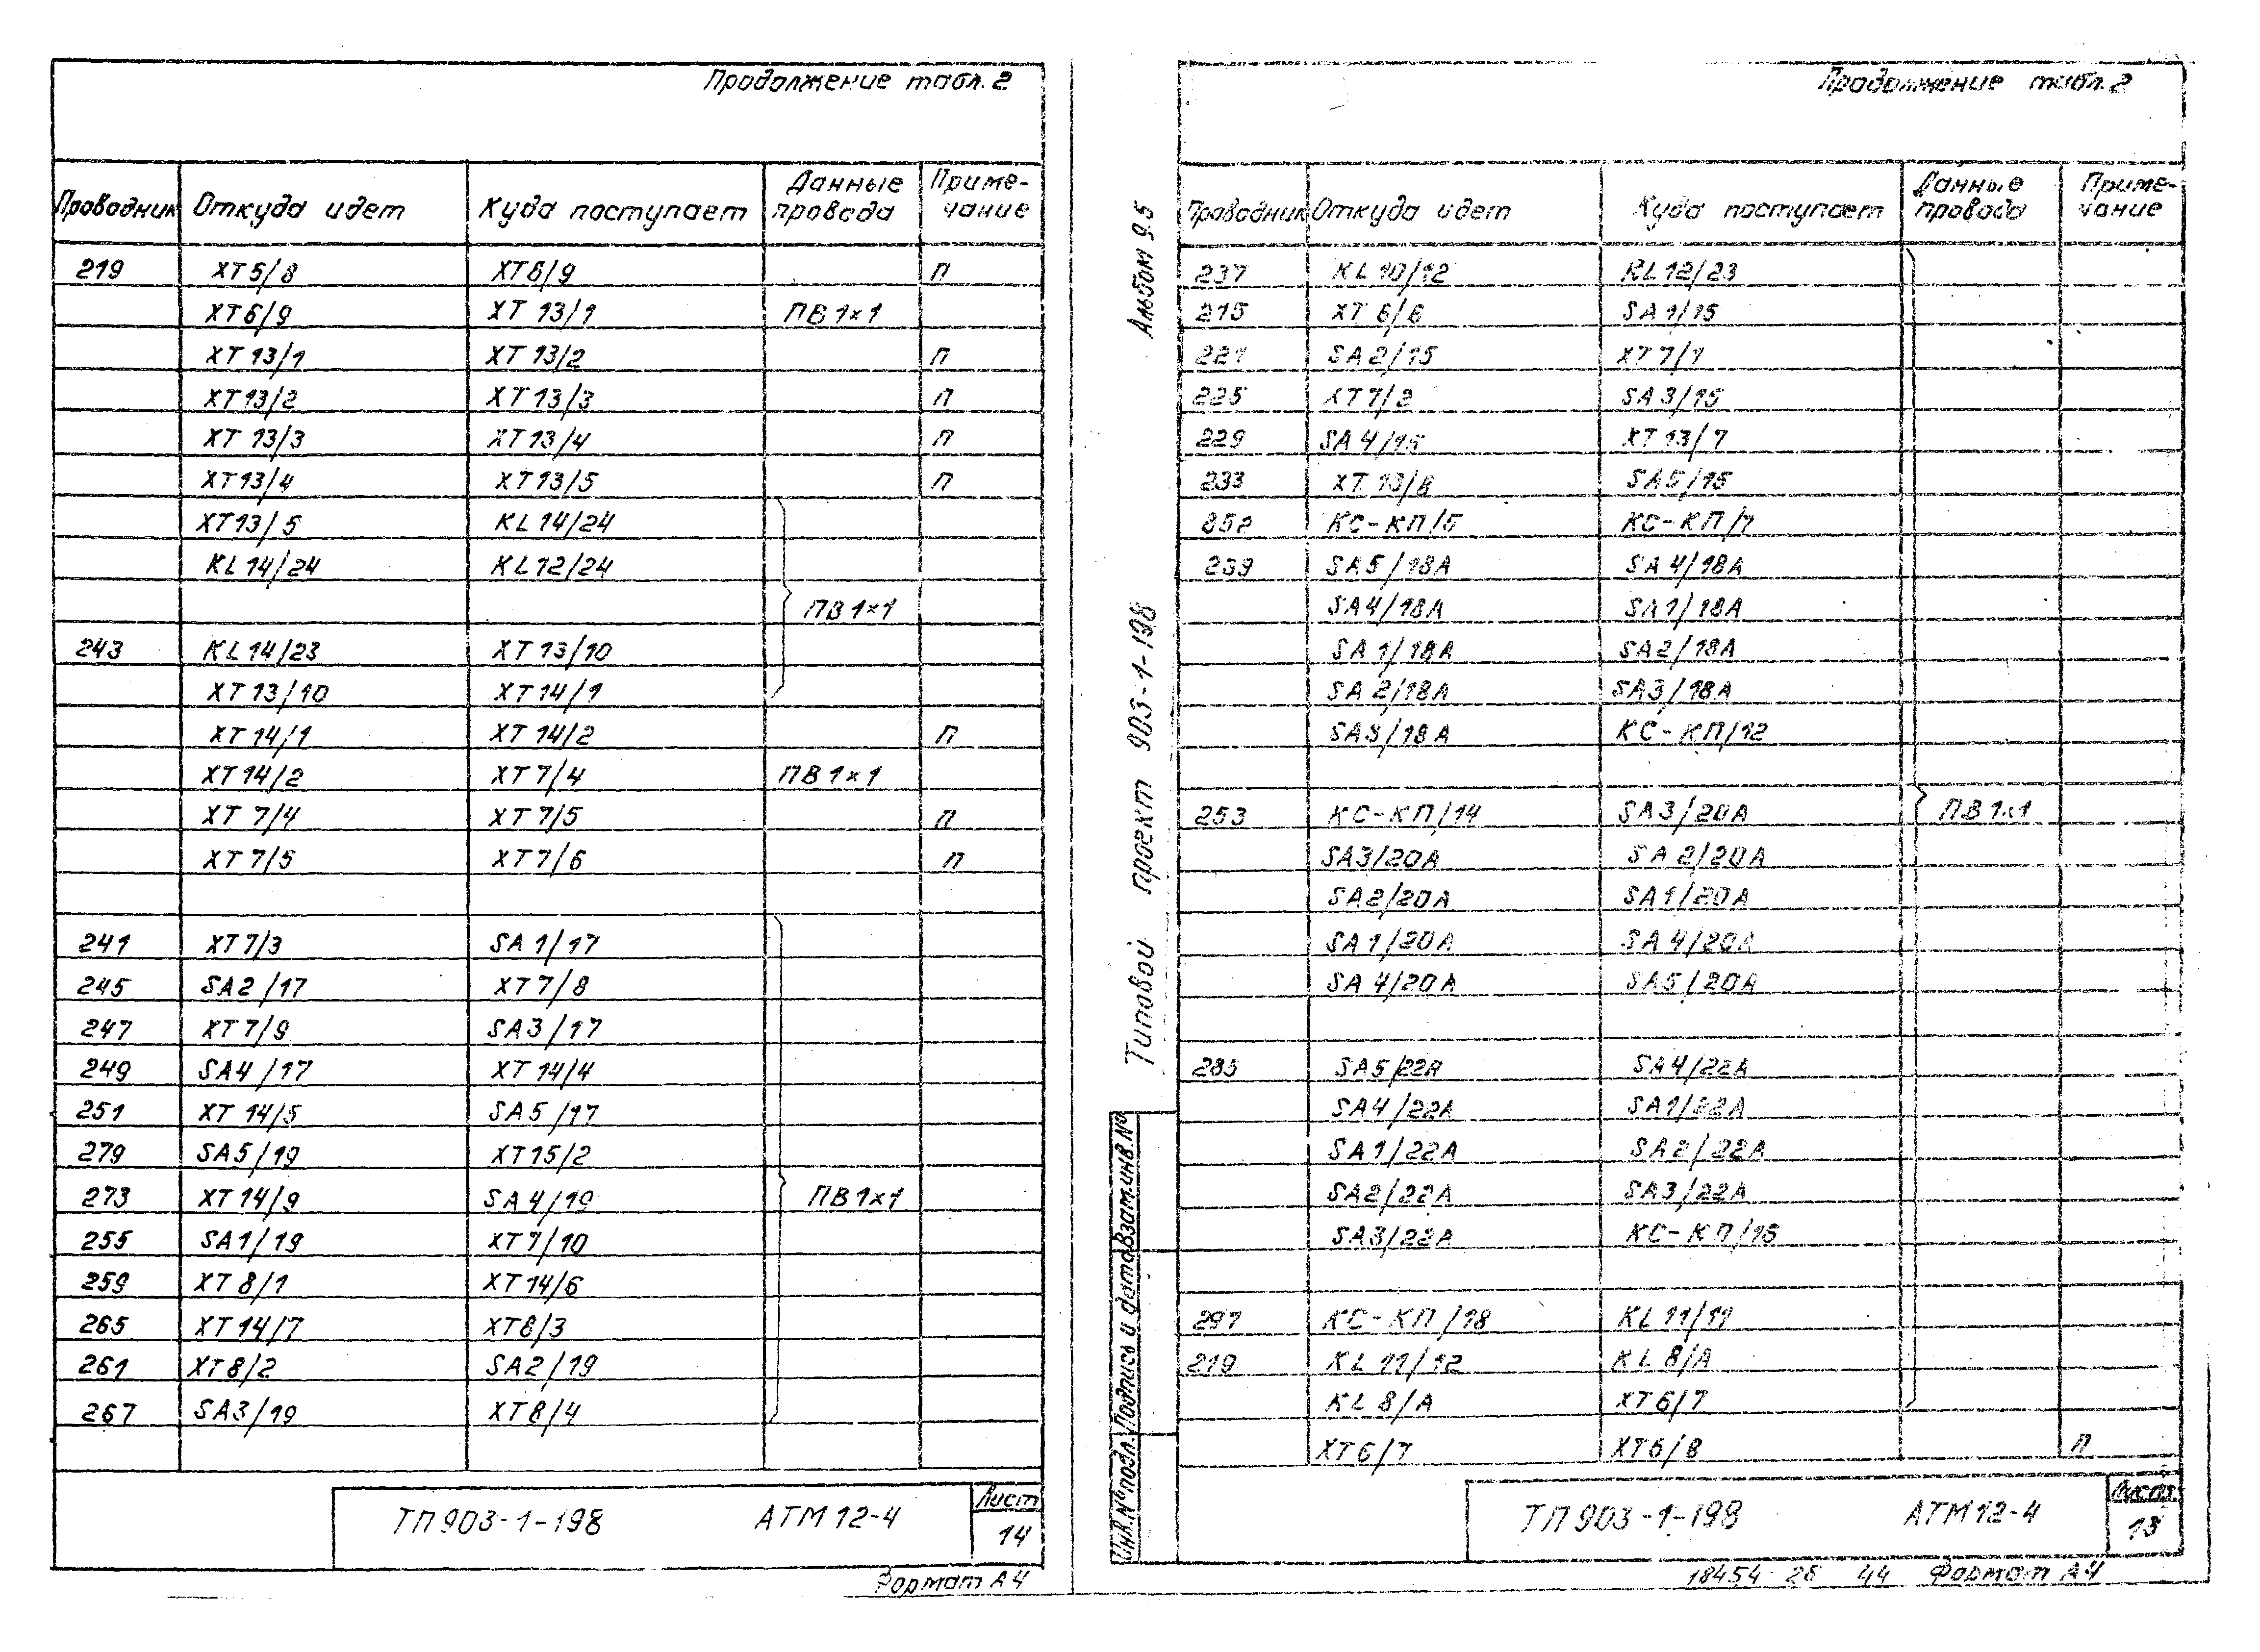 Продолжение табл. 2
Проводник Откуда идет Куда поступает Данные провода Приме-чание
219 XT5/8 XT6/9 П
XT6/9 XT13/1 ПВ1×1
XT13/1 XT13/2 П
XT13/2 XT13/3 П
XT13/3 XT13/4 П
XT13/4 XT13/5 П
XT13/5 KL14/24
KL14/24 KL12/24
ПВ1×1
243 KL14/23 XT13/10
XT13/10 XT14/1
XT14/1 XT14/2 П
XT14/2 XT7/4 ПВ1×1
XT7/4 XT7/5 П
XT7/5 XT7/6 П
241 XT7/3 SA1/17
245 SA2/17 XT7/8
247 XT7/9 SA3/17
249 SA4/17 XT14/4
251 XT14/5 SA5/17
279 SA5/19 XT15/2
273 XT14/9 SA4/19 ПВ1×1
255 SA1/19 XT7/10
259 XT8/1 XT14/6
265 XT14/7 XT8/3
261 XT8/2 SA2/19
267 SA3/19 XT8/4
ТП903-1-198 АТМ12-4 Лист
14
Формат А4
Альбом 9.5
Типовой проект 903-1-198
Инв.№подл. Подпись и дата Взам.инв.№
Продолжение табл. 2
Проводник Откуда идет Куда поступает Данные провода Приме-чание
237 KL10/12 KL12/23
215 XT6/6 SA1/15
221 SA2/15 XT7/1
225 XT7/2 SA3/15
229 SA4/15 XT13/7
233 XT13/8 SA5/15
852 КС-КП/5 КС-КП/7
239 SA5/18A SA4/18A
SA4/18A SA1/18A
SA1/18A SA2/18A
SA2/18A SA3/18A
SA3/18A КС-КП/12
253 КС-КП/14 SA3/20A ПВ1×1
SA3/20A SA2/20A
SA2/20A SA1/20A
SA1/20A SA4/20A
SA4/20A SA5/20A
285 SA5/22A SA4/22A
SA4/22A SA1/22A
SA1/22A SA2/22A
SA2/22A SA3/22A
SA3/22A КС-КП/16
297 КС-КП/18 KL11/11
219 KL11/12 KL8/A
KL8/A XT6/7
XT6/7 XT6/8 П
ТП903-1-198 АТМ12-4 Лист
13
18454 26 44 Формат А4